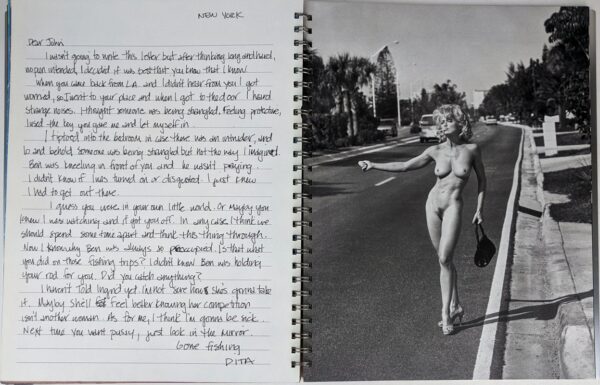 NEW YORK
Dear John
I wasn't going to write this letter but after thinking long and hard,
no pun intended, I decided it was best that you know that I know.
When you came back from L.A. and I didn't hear from you I got
worried, so I went to your place and when I got to the door I heard
strange noises. I thought someone was being strangled. Feeling protective,
I used the key you gave me and let myself in.
I tiptoed into the bedroom in case there was an intruder, and
lo and behold someone was being strangled but not the way I imagined.
Ben was kneeling in front of you and he wasn't praying.
I didn't know if I was turned on or disgusted. I just knew
I had to get out there.
I guess you were in your own little world. Or maybe you
knew I was watching and it got you off. In any case I think we
should spend some time apart and think this thing through.
Now I know why Ben was always so preoccupied. Is that what
you did on those fishing trips? I didn't know Ben was holding
your rod for you. Did you catch anything?
I haven't told Ingrid yet. I'm not sure how she's gonna take
it. Maybe she'll feel better knowing her competition
isn't another woman. As for me, I think I'm gonna be sick.
Next time you want pussy, just look in the mirror.
Gone fishing
DITA